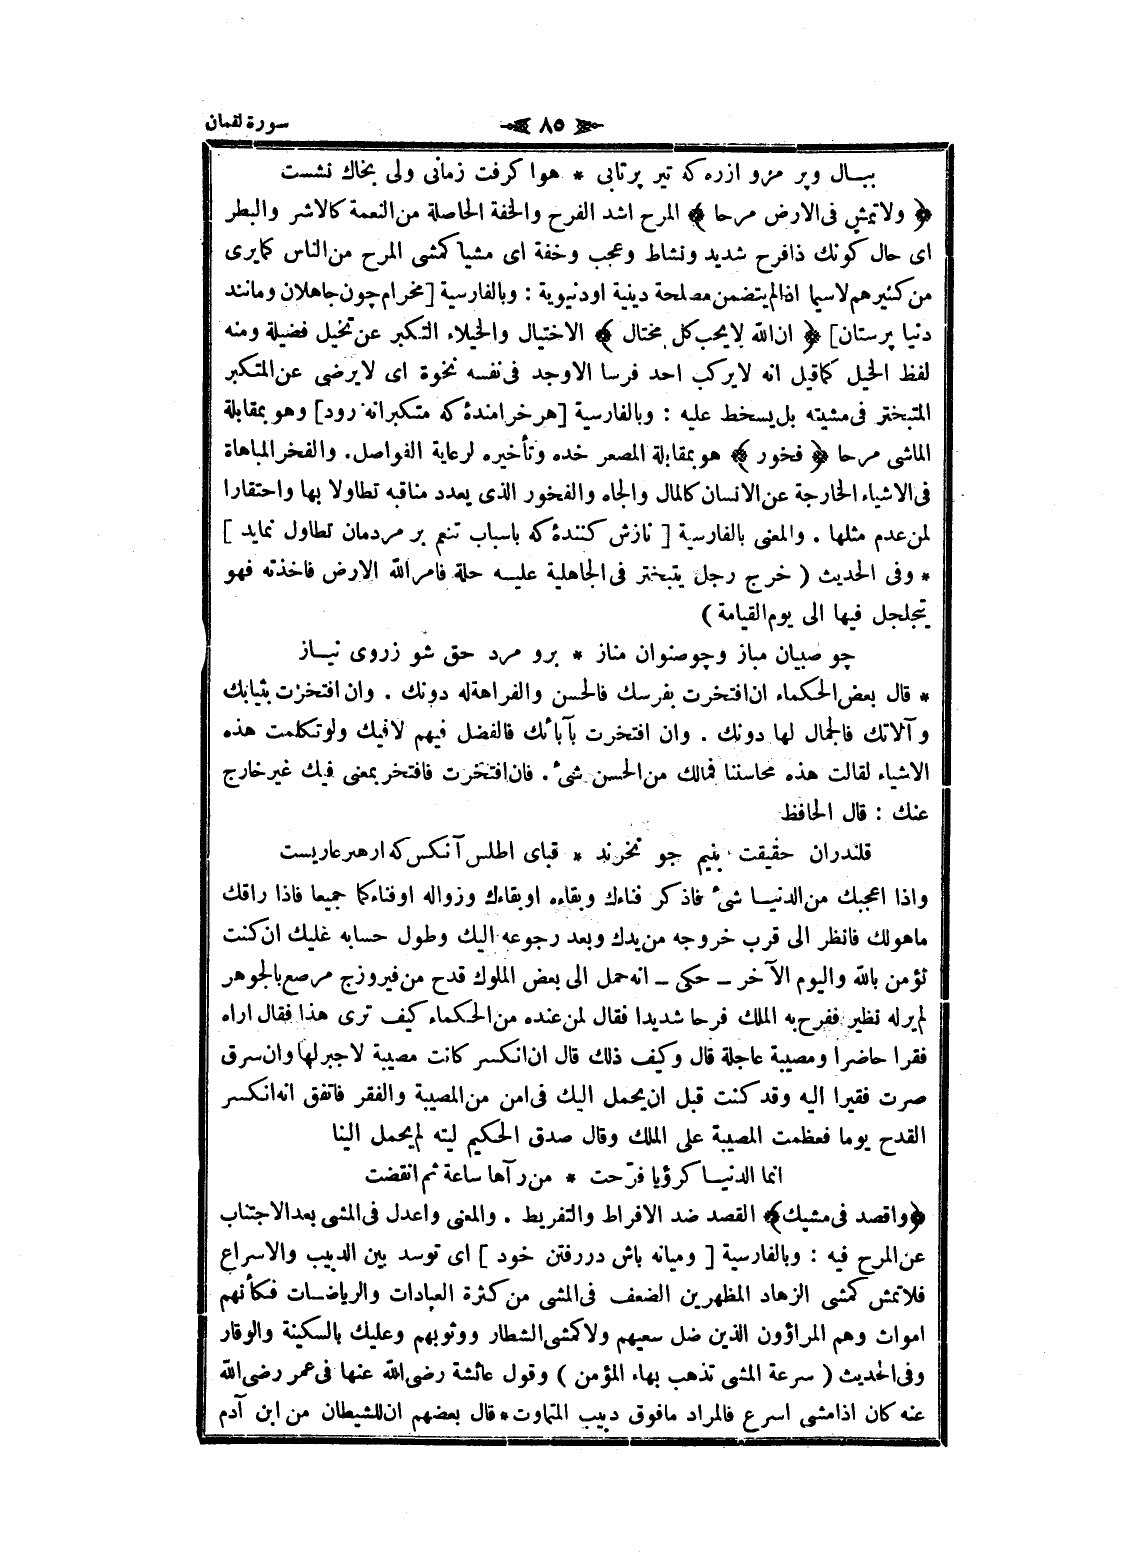 سورة لقمان
٨٥
ببال وپر مرو ازره که تیر پرتابی * هوا کرفت زمانی ولی بخاك نشست
﴿ ولاتمش فى الارض مرحا ﴾ المرح اشد الفرح والخفة الحاصلة من النعمة كالاشر والبطر
اى حال كونك ذافرح شديد ونشاط وعجب وخفة اى مشيا كمشى المرح من الناس كمايرى
من كثيرهم لاسيما اذالم يتضمن مصلحة دينية اودنيوية : وبالفارسية [مخرام چون جاهلان ومانند
دنيا پرستان] ﴿ ان الله لايحب كل مختال ﴾ الاختيال والخيلاء التكبر عن تخيل فضيلة ومنه
لفظ الخيل كماقيل انه لايركب احد فرسا الاوجد فى نفسه نخوة اى لايرضى عن المتكبر
المتبختر فى مشيته بل يسخط عليه : وبالفارسية [هر خرامندۀ که متکبرانه رود] وهو بمقابلة
الماشى مرحا ﴿ فخور ﴾ هو بمقابلة المصعر خده وتأخيره لرعاية الفواصل. والفخر المباهاة
فى الاشياء الخارجة عن الانسان كالمال والجاه والفخور الذى يعدد مناقبه تطاولا بها واحتقارا
لمن عدم مثلها . والمعنى بالفارسية [ نازش کنندۀ که باسباب تنعم بر مردمان تطاول نمايد ]
* وفى الحديث ( خرج رجل يتبختر فى الجاهلية عليه حلة فامر الله الارض فاخذته فهو
يتجلجل فيها الى يوم القيامة )
چو صبیان مباز وچو صنوان مناز * برو مرد حق شو زروی نیاز
* قال بعض الحكماء ان افتخرت بفرسك فالحسن والفراهة له دونك . وان افتخرت بثيابك
وآلاتك فالجمال لها دونك . وان افتخرت بآبائك فالفضل فيهم لافيك ولوتكلمت هذه
الاشياء لقالت هذه محاسننا فمالك من الحسن شىء . فان افتخرت فافتخر بمعنى فيك غير خارج
عنك : قال الحافظ
قلندران حقیقت بنیم جو نخرند * قبای اطلس آنکس که ازهنر عاریست
واذا اعجبك من الدنيا شىء فاذكر فناءك وبقاءه اوبقاءك وزواله اوفناءكما جميعا فاذا راقك
ماهولك فانظر الى قرب خروجه من يدك وبعد رجوعه اليك وطول حسابه عليك ان كنت
تؤمن بالله واليوم الآخر ــ حكى ــ انه حمل الى بعض الملوك قدح من فيروزج مرصع بالجوهر
لم يرله نظير ففرح به الملك فرحا شديدا فقال لمن عنده من الحكماء كيف ترى هذا فقال اراه
فقرا حاضرا ومصيبة عاجلة قال وكيف ذلك قال ان انكسر كانت مصيبة لاجبرلها وان سرق
صرت فقيرا اليه وقد كنت قبل ان يحمل اليك فى امن من المصيبة والفقر فاتفق انه انكسر
القدح يوما فعظمت المصيبة على الملك وقال صدق الحكيم ليته لم يحمل الينا
انما الدنيا كرؤيا فرّحت * من رآها ساعة ثم انقضت
﴿واقصد فى مشيك﴾ القصد ضد الافراط والتفريط . والمعنى واعدل فى المشى بعد الاجتناب
عن المرح فيه : وبالفارسية [ وميانه باش دررفتن خود ] اى توسد بين الدبيب والاسراع
فلاتمش كمشى الزهاد المظهرين الضعف فى المشى من كثرة العبادات والرياضات فكأنهم
اموات وهم المراؤون الذين ضل سعيهم ولاكمشى الشطار ووثوبهم وعليك بالسكينة والوقار
وفى الحديث ( سرعة المشى تذهب بهاء المؤمن ) وقول عائشة رضى الله عنها فى عمر رضى الله
عنه كان اذامشى اسرع فالمراد مافوق دبيب المتماوت * قال بعضهم ان للشيطان من ابن آدم